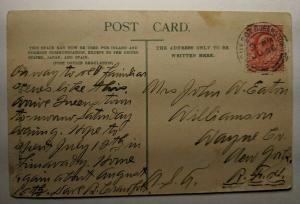 POST CARD.
THIS SPACE MAY NOW BE USED FOR INLAND AND
FOREIGN COMMUNICATION, EXCEPT TO THE UNITED
STATES, JAPAN, AND SPAIN.
(POST OFFICE REGULATION).
THE ADDRESS ONLY TO BE
WRITTEN HERE.
On way to old familiar
scenes like this
arrive Queenstown
to-morrow Saturday
evening. Hope to
spend July 10th in
Home
again about August
10th.
Mrs John W. Eaton
Williamson
Wayne Co.
New York
U.S.A.